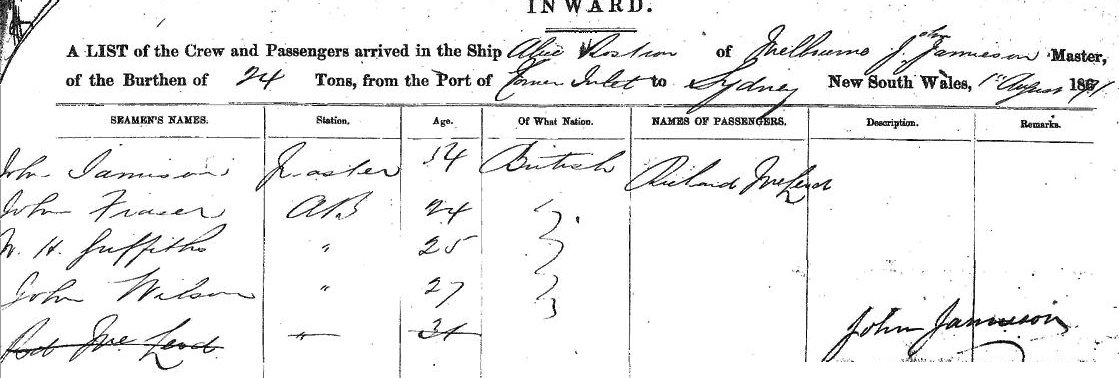 INWARD.
A LIST of the Crew and Passengers arrived in the Ship Alice of Melbourne John Jamieson Master,
of the Burthen of 24 Tons, from the Port of Corner Inlet to Sydney New South Wales, 1st August 1871
SEAMEN'S NAMES. Station. Age. Of What Nation. NAMES OF PASSENGERS. Description. Remarks.
John Jamieson Master 34 British Richard McLeod
John Fraser AB 24 "
W. H. Griffiths " 25 "
John Wilson " 27 "
Rod McLeod " 31
John Jamieson